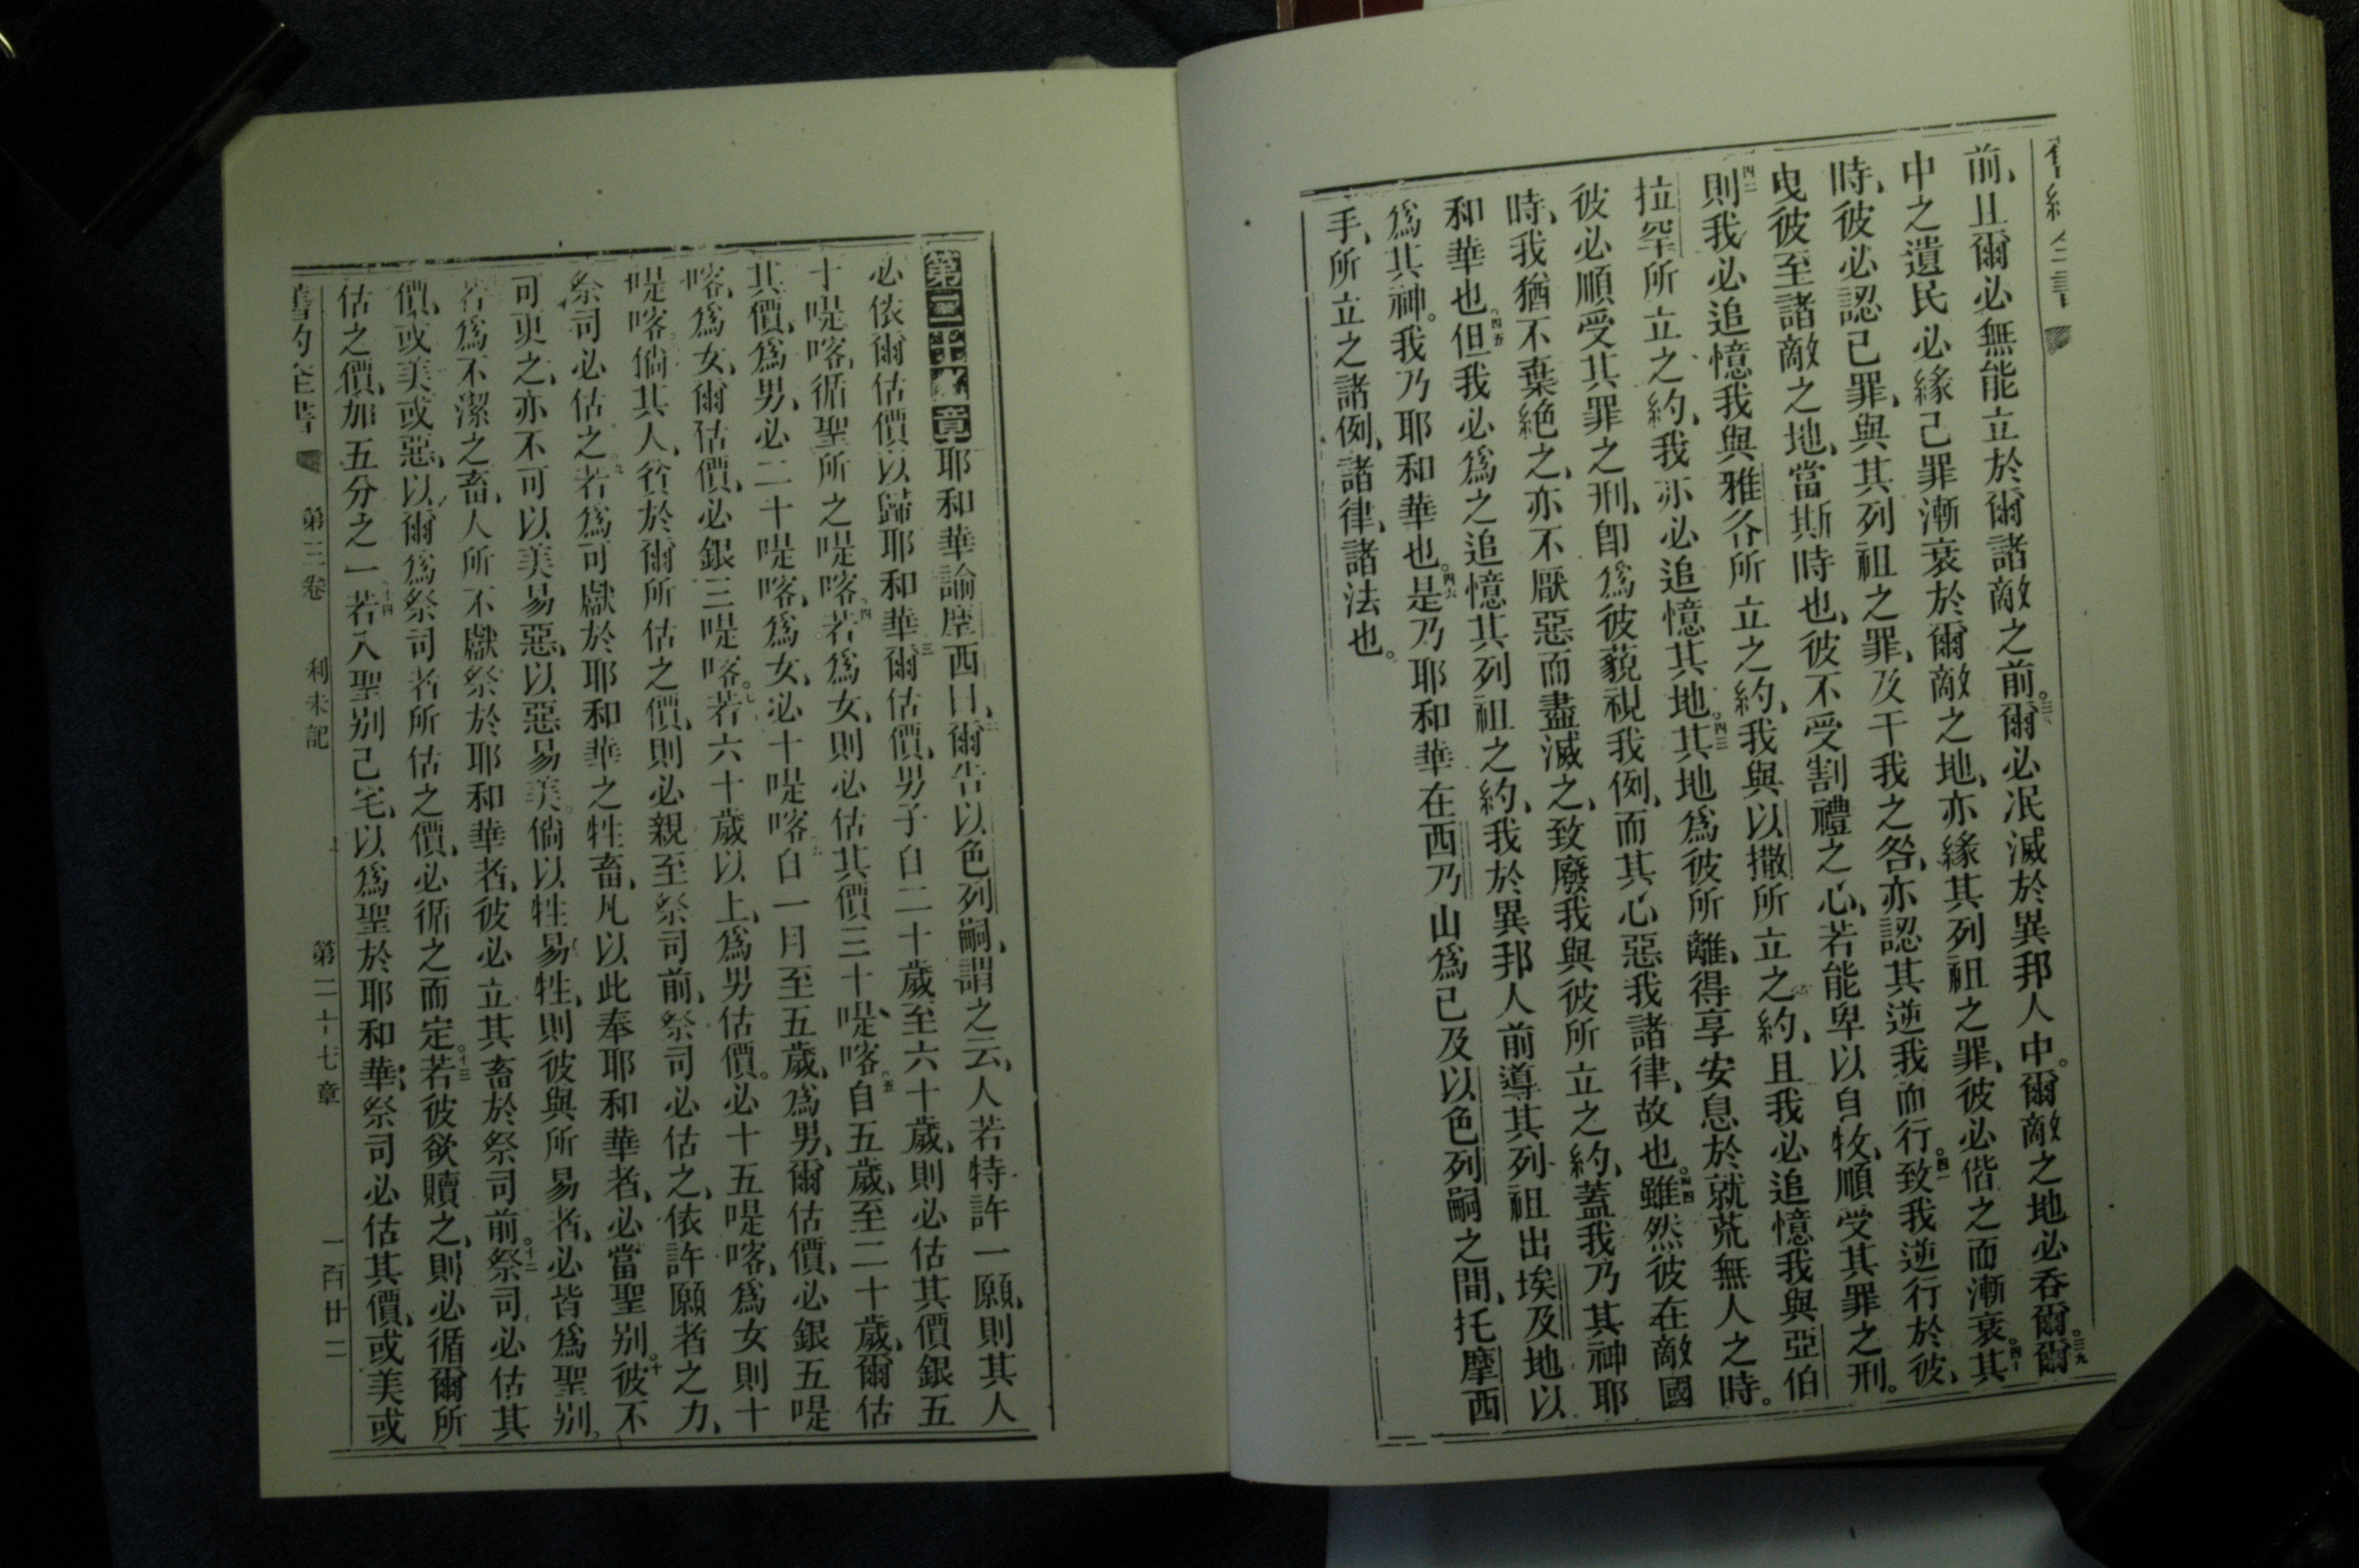 前、且爾必無能立於爾諸敵之前。爾必泯滅於異邦人中。爾敵之地必吞爾。三九爾
中之遺民必緣己罪漸衰於爾敵之地、亦緣其列祖之罪、彼必偕之而漸衰。四十其
時、彼必認己罪、與其列祖之罪、及干我之咎、亦認其逆我而行。四一致我逆行於彼、
曳彼至諸敵之地、當斯時也、彼不受割禮之心、若能卑以自牧、順受其罪之刑。
四二則我必追憶我與雅各所立之約、我與以撒所立之約、且我必追憶我與亞伯
拉罕所立之約、我亦必追憶其地。四三其地爲彼所離、得享安息於就荒無人之時。
彼必順受其罪之刑、卽爲彼藐視我例、而其心惡我諸律、故也。四四雖然彼在敵國
時、我猶不棄絕之、亦不厭惡而盡滅之、致廢我與彼所立之約、蓋我乃其神耶
和華也。四五但我必爲之追憶其列祖之約、我於異邦人前導其列祖出埃及地以
爲其神。我乃耶和華也。四六是乃耶和華在西乃山爲己及以色列嗣之間、托摩西
手、所立之諸例、諸律、諸法也。
第二十七章耶和華諭摩西曰、二爾告以色列嗣、謂之云、人若特許一願、則其人
必依爾估價以歸耶和華三爾估價、男子自二十歲至六十歲、則必估其價銀五
十㖷喀、循聖所之㖷喀。四若爲女、則必估其價三十㖷喀。五自五歲、至二十歲、爾估
其價、爲男、必二十㖷喀、爲女、必十㖷喀六自一月至五歲、爲男、爾估價、必銀五㖷
喀、爲女、爾估價、必銀三㖷喀。七若六十歲以上、爲男估價。必十五㖷喀、爲女則十
㖷喀。倘其人、貧於爾所估之價、則必親至祭司前、祭司必估之、依許願者之力、
祭司必估之。九若爲可獻於耶和華之牲畜、凡以此奉耶和華者、必當聖別。十彼不
可更之、亦不可以美易惡、以惡易美。倘以牲易牲、則彼與所易者、必皆爲聖別。
若爲不潔之畜、人所不獻祭於耶和華者、彼必立其畜於祭司前。十二祭司必估其
價、或美或惡、以爾爲祭司者所估之價、必循之而定。十三若彼欲贖之、則必循爾所
估之價、加五分之一十四若人聖別己宅、以爲聖於耶和華、祭司必估其價、或美或
舊約全書 第三卷 利未記 第二十七章 一百廿二